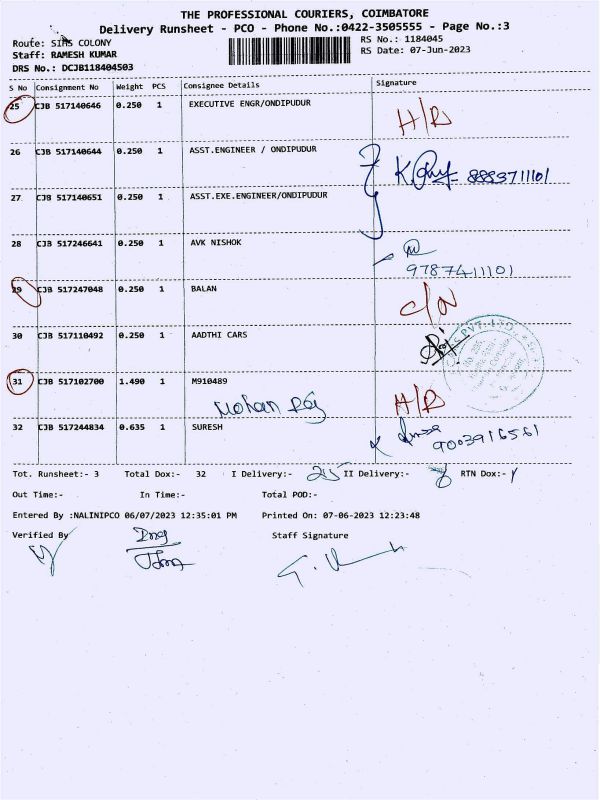 THE PROFESSIONAL COURIERS, COIMBATORE
Delivery Runsheet - PCO - Phone No.:0422-3505555 - Page No.:3
Route: SIHS COLONY RS No.: 1184045
Staff: RAMESH KUMAR RS Date: 07-Jun-2023
DRS No.: DCJB118404503
S No Consignment No Weight PCS Consignee Details Signature
25 CJB 517140646 0.250 1 EXECUTIVE ENGR/ONDIPUDUR
H/R
26 CJB 517140644 0.250 1 ASST.ENGINEER / ONDIPUDUR
8883711101
27 CJB 517140651 0.250 1 ASST.EXE.ENGINEER/ONDIPUDUR
28 CJB 517246641 0.250 1 AVK NISHOK
9787411101
29 CJB 517247048 0.250 1 BALAN
C/N
30 CJB 517110492 0.250 1 AADTHI CARS
PVT. LTD.
31 CJB 517102700 1.490 1 M910489
Mohan Raj H/R
32 CJB 517244834 0.635 1 SURESH
9003916561
Tot. Runsheet:- 3 Total Dox:- 32 I Delivery:- 25 II Delivery:- RTN Dox:-
Out Time:- In Time:- Total POD:-
Entered By :NALINIPCO 06/07/2023 12:35:01 PM Printed On: 07-06-2023 12:23:48
Verified By Staff Signature